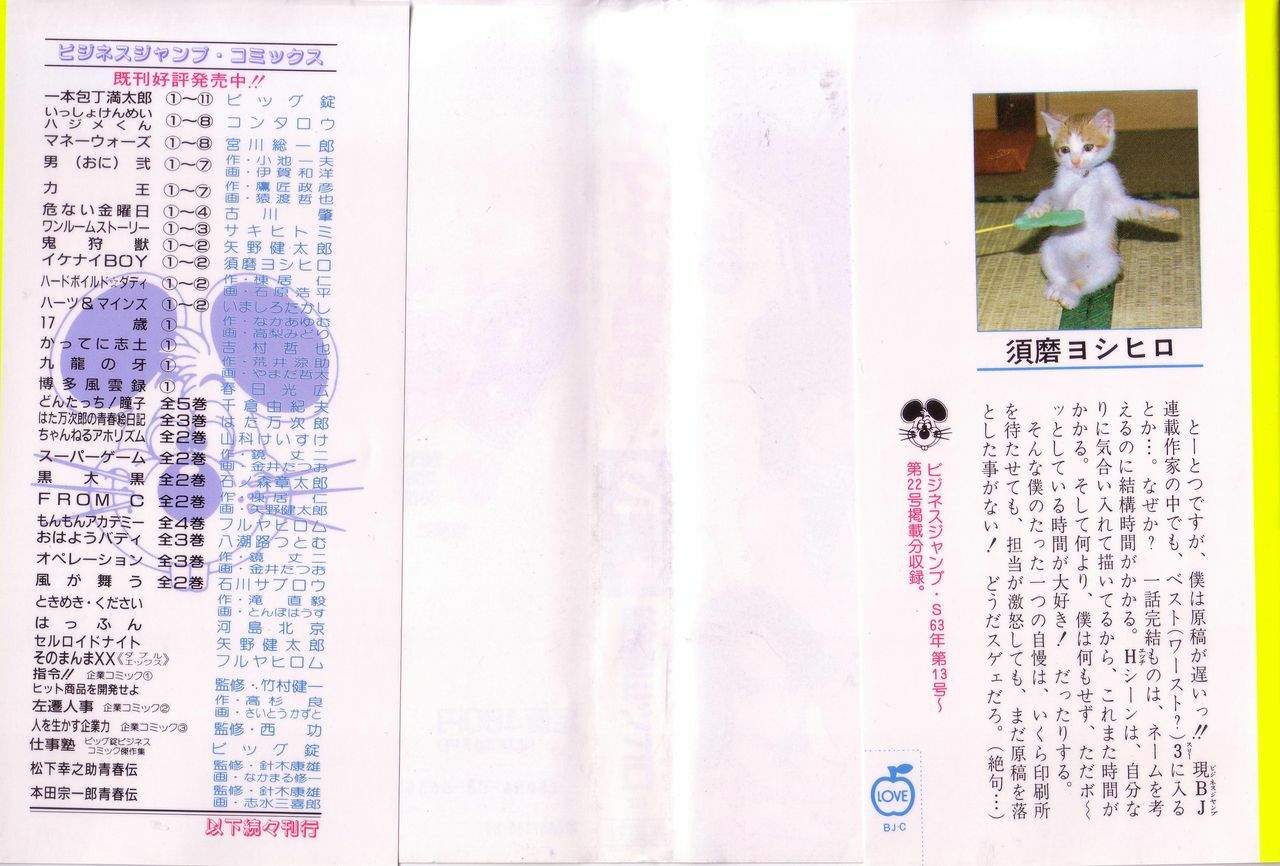 須磨ヨシヒロ
とーとつですが、僕は原稿が遅いっ!!現BJ
ビジネスジャンプ
連載作家の中でも、ベスト(ワースト?)3に入る
スリー
とか…。なぜか? 一話完結ものは、ネームを考
えるのに結構時間がかかる。Hシーンは、自分な
エッチ
りに気合い入れて描いてるから、これまた時間が
かかる。そして何より、僕は何もせず、ただボ〜
ッとしている時間が大好き! だったりする。
そんな僕のたった一つの自慢は、いくら印刷所
を待たせても、担当が激怒しても、まだ原稿を落
とした事がない! どうだスゲェだろ。(絶句…)
ビジネスジャンプ・S63年第13号〜
第22号掲載分収録。
LOVE
BJ・C
ビジネスジャンプ・コミックス
既刊好評発売中!!
一本包丁満太郎 ①〜⑪ ビッグ錠
いっしょけんめい
ハジメくん ①〜⑧ コンタロウ
マネーウォーズ ①〜⑧ 宮川総一郎
男(おに)弐 ①〜⑦ 作・小池一夫
画・伊賀和洋
力王 ①〜⑦ 作・鷹匠政彦
画・猿渡哲也
危ない金曜日 ①〜④ 古川肇
ワンルームストーリー ①〜③ サキヒトミ
鬼狩獣 ①〜② 矢野健太郎
イケナイBOY ①〜② 須磨ヨシヒロ
ハードボイルド☆ダディ ①〜② 作・棟居仁
画・石原浩平
ハーツ&マインズ ①〜② いましろたかし
17歳 ① 作・なかあゆむ
画・高梨みどり
かってに志士 ① 吉村哲也
九龍の牙 ① 作・荒井涼助
画・やまだ哲太
博多風雲録 ① 春日光広
どんたっち!瞳子 全5巻 千倉由紀夫
はた万次郎の青春絵日記 全3巻 はた万次郎
ちゃんねるアホリズム 全2巻 山科けいすけ
スーパーゲーム 全2巻 作・鏡丈二
画・金井たつお
黒大黒 全2巻 石ノ森章太郎
FROM C 全2巻 作・棟居仁
画・矢野健太郎
もんもんアカデミー 全4巻 フルヤヒロム
おはようバディ 全3巻 八潮路つとむ
オペレーション 全3巻 作・鏡丈二
画・金井たつお
風が舞う 全2巻 石川サブロウ
ときめき・ください 作・滝直毅
画・とんぼはうす
はっふん 河島北京
セルロイドナイト 矢野健太郎
そのまんまXX《ダブルエックス》 フルヤヒロム
指令!! 企業コミック①
ヒット商品を開発せよ 監修・竹村健一
左遷人事 企業コミック② 作・高杉良
画・さいとうかずと
人を生かす企業力 企業コミック③ 監修・西功
仕事塾 ビッグ錠ビジネスコミック傑作集 ビッグ錠
松下幸之助青春伝 監修・針木康雄
画・なかまる修一
本田宗一郎青春伝 監修・針木康雄
画・志水三喜郎
以下続々刊行